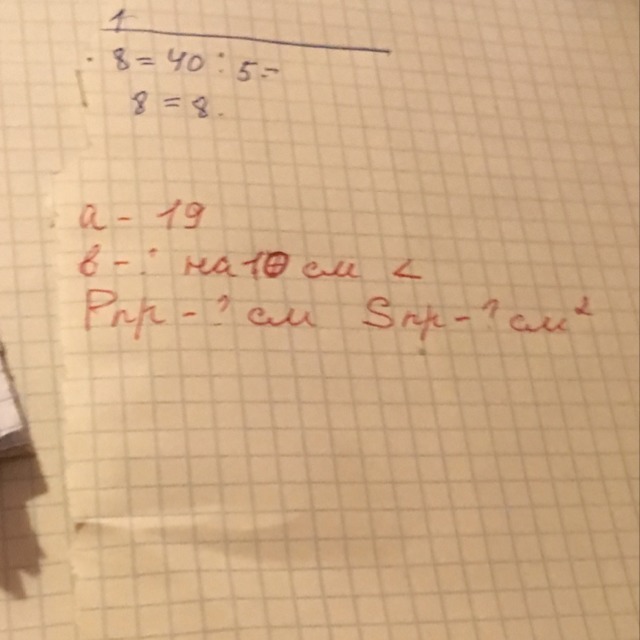 8 = 40 : 5 =
8 = 8.
а - 19
в - ? на 10 см <
Рпр - ? см Sпр - ? см²